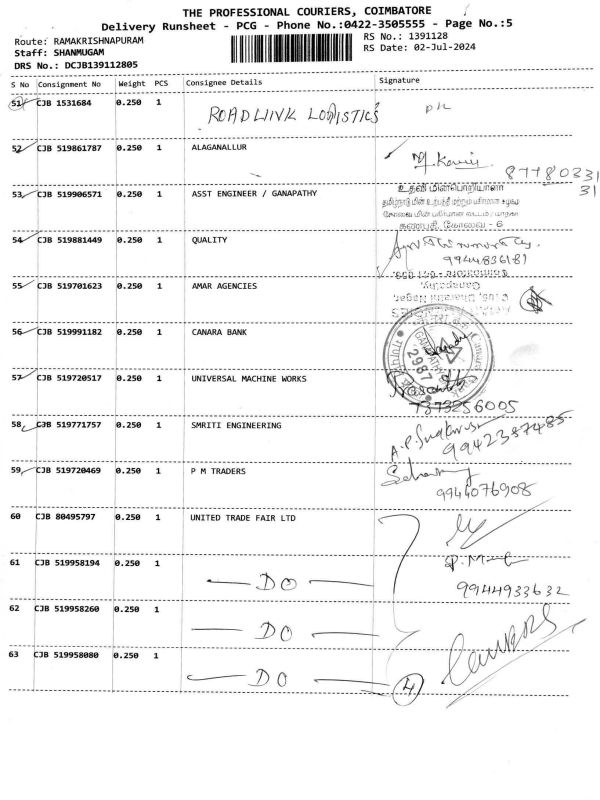 THE PROFESSIONAL COURIERS, COIMBATORE
Delivery Runsheet - PCG - Phone No.:0422-3505555 - Page No.:5
Route: RAMAKRISHNAPURAM
Staff: SHANMUGAM
DRS No.: DCJB139112805
RS No.: 1391128
RS Date: 02-Jul-2024
S No Consignment No Weight PCS Consignee Details Signature
51 CJB 1531684 0.250 1 ROADLINK LOGISTICS
52 CJB 519861787 0.250 1 ALAGANALLUR
53 CJB 519906571 0.250 1 ASST ENGINEER / GANAPATHY
உதவி மின்பொறியாளர்
கணபதி, கோவை - 6
54 CJB 519881449 0.250 1 QUALITY
9944836181
55 CJB 519701623 0.250 1 AMAR AGENCIES
56 CJB 519991182 0.250 1 CANARA BANK
2987
57 CJB 519720517 0.250 1 UNIVERSAL MACHINE WORKS
7373256005
58 CJB 519771757 0.250 1 SMRITI ENGINEERING
9942387485
59 CJB 519720469 0.250 1 P M TRADERS
9944076908
60 CJB 80495797 0.250 1 UNITED TRADE FAIR LTD
61 CJB 519958194 0.250 1 DO
9944933632
62 CJB 519958260 0.250 1 DO
63 CJB 519958080 0.250 1 DO 4